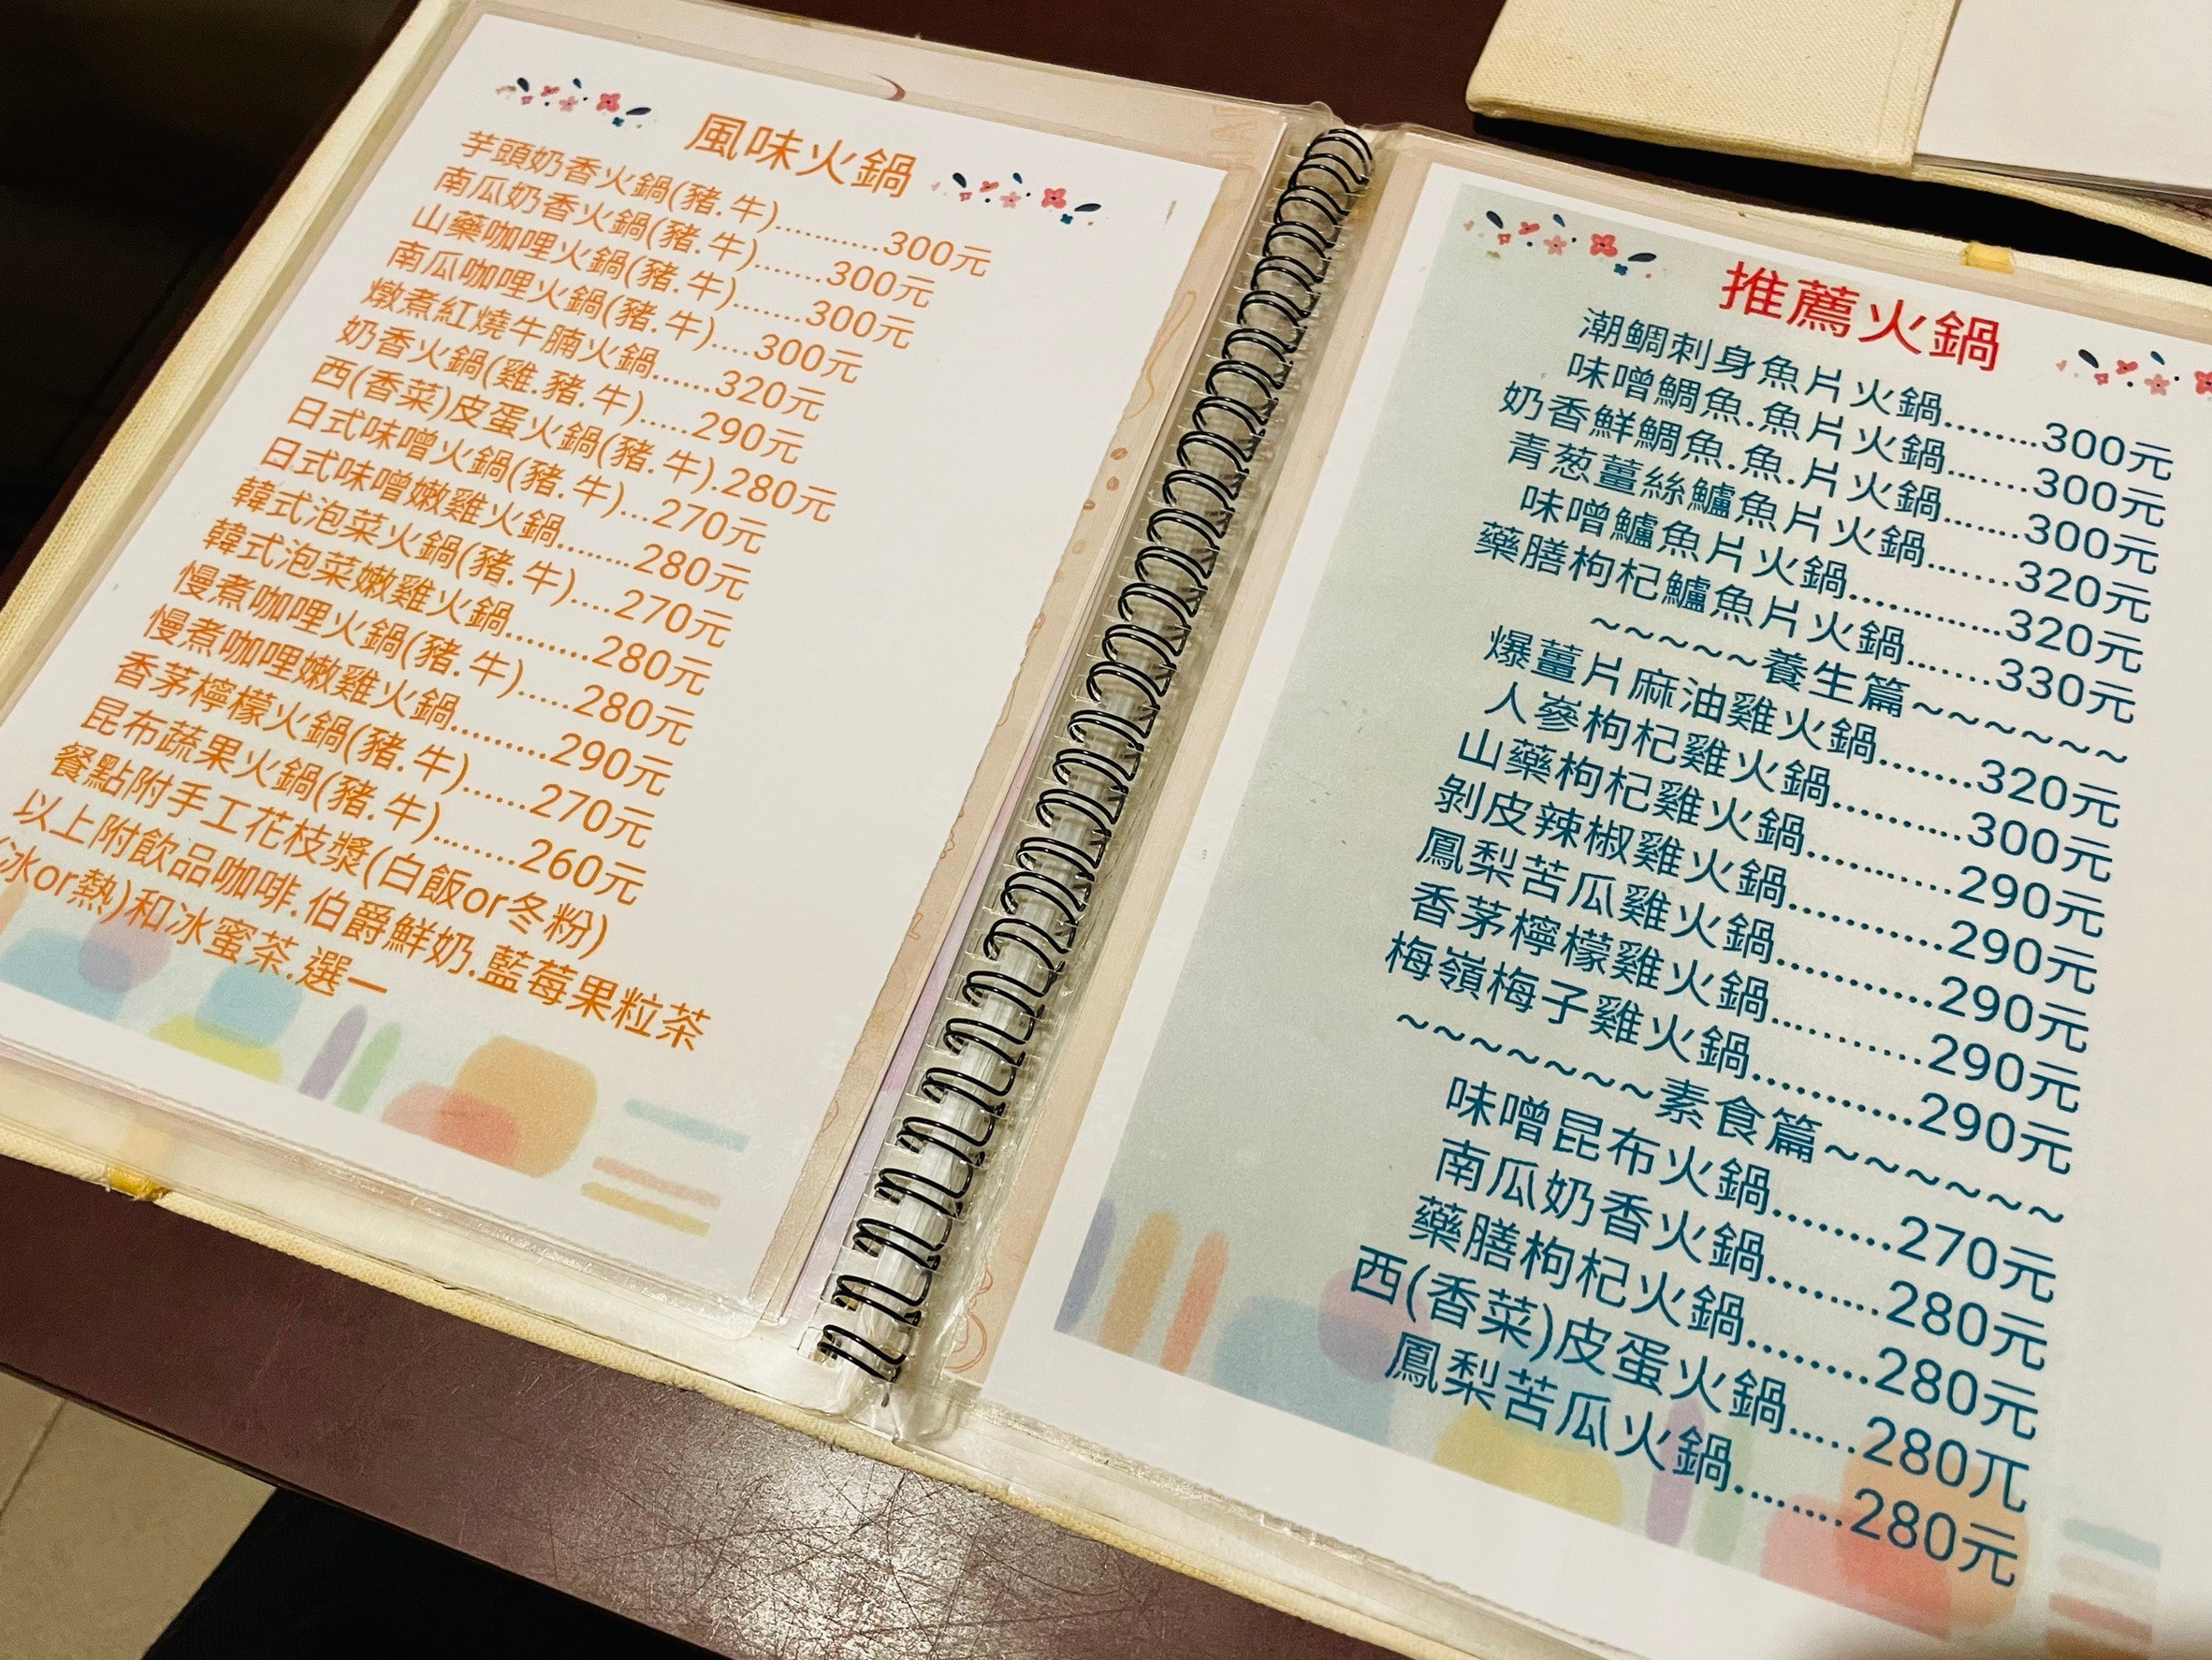 風味火鍋
芋頭奶香火鍋(豬.牛)...........300元
南瓜奶香火鍋(豬.牛).......300元
山藥咖哩火鍋(豬.牛).......300元
南瓜咖哩火鍋(豬.牛)....300元
燉煮紅燒牛腩火鍋......320元
奶香火鍋(雞.豬.牛).....290元
西(香菜)皮蛋火鍋(豬.牛).280元
日式味噌火鍋(豬.牛)...270元
日式味噌嫩雞火鍋.......280元
韓式泡菜火鍋(豬.牛)....270元
韓式泡菜嫩雞火鍋........280元
慢煮咖哩火鍋(豬.牛).....280元
慢煮咖哩嫩雞火鍋.........290元
香茅檸檬火鍋(豬.牛)......270元
昆布蔬果火鍋(豬.牛)........260元
餐點附手工花枝漿(白飯or冬粉)
以上附飲品咖啡.伯爵鮮奶.藍莓果粒茶
(冰or熱)和冰蜜茶.選一
推薦火鍋
潮鲷刺身魚片火鍋........300元
味噌鯛魚.魚片火鍋.......300元
奶香鮮鯛魚.魚.片火鍋......300元
青葱薑絲鱸魚片火鍋.......320元
味噌鱸魚片火鍋............320元
藥膳枸杞鱸魚片火鍋......330元
~~~~~養生篇~~~~~~
爆薑片麻油雞火鍋.......320元
人蔘枸杞雞火鍋..........300元
山藥枸杞雞火鍋...........290元
剝皮辣椒雞火鍋............290元
鳳梨苦瓜雞火鍋............290元
香茅檸檬雞火鍋............290元
梅嶺梅子雞火鍋............290元
~~~~~~~素食篇~~~~~~
味噌昆布火鍋.........270元
南瓜奶香火鍋.........280元
藥膳枸杞火鍋.........280元
西(香菜)皮蛋火鍋.....280兀
鳳梨苦瓜火鍋.........280元